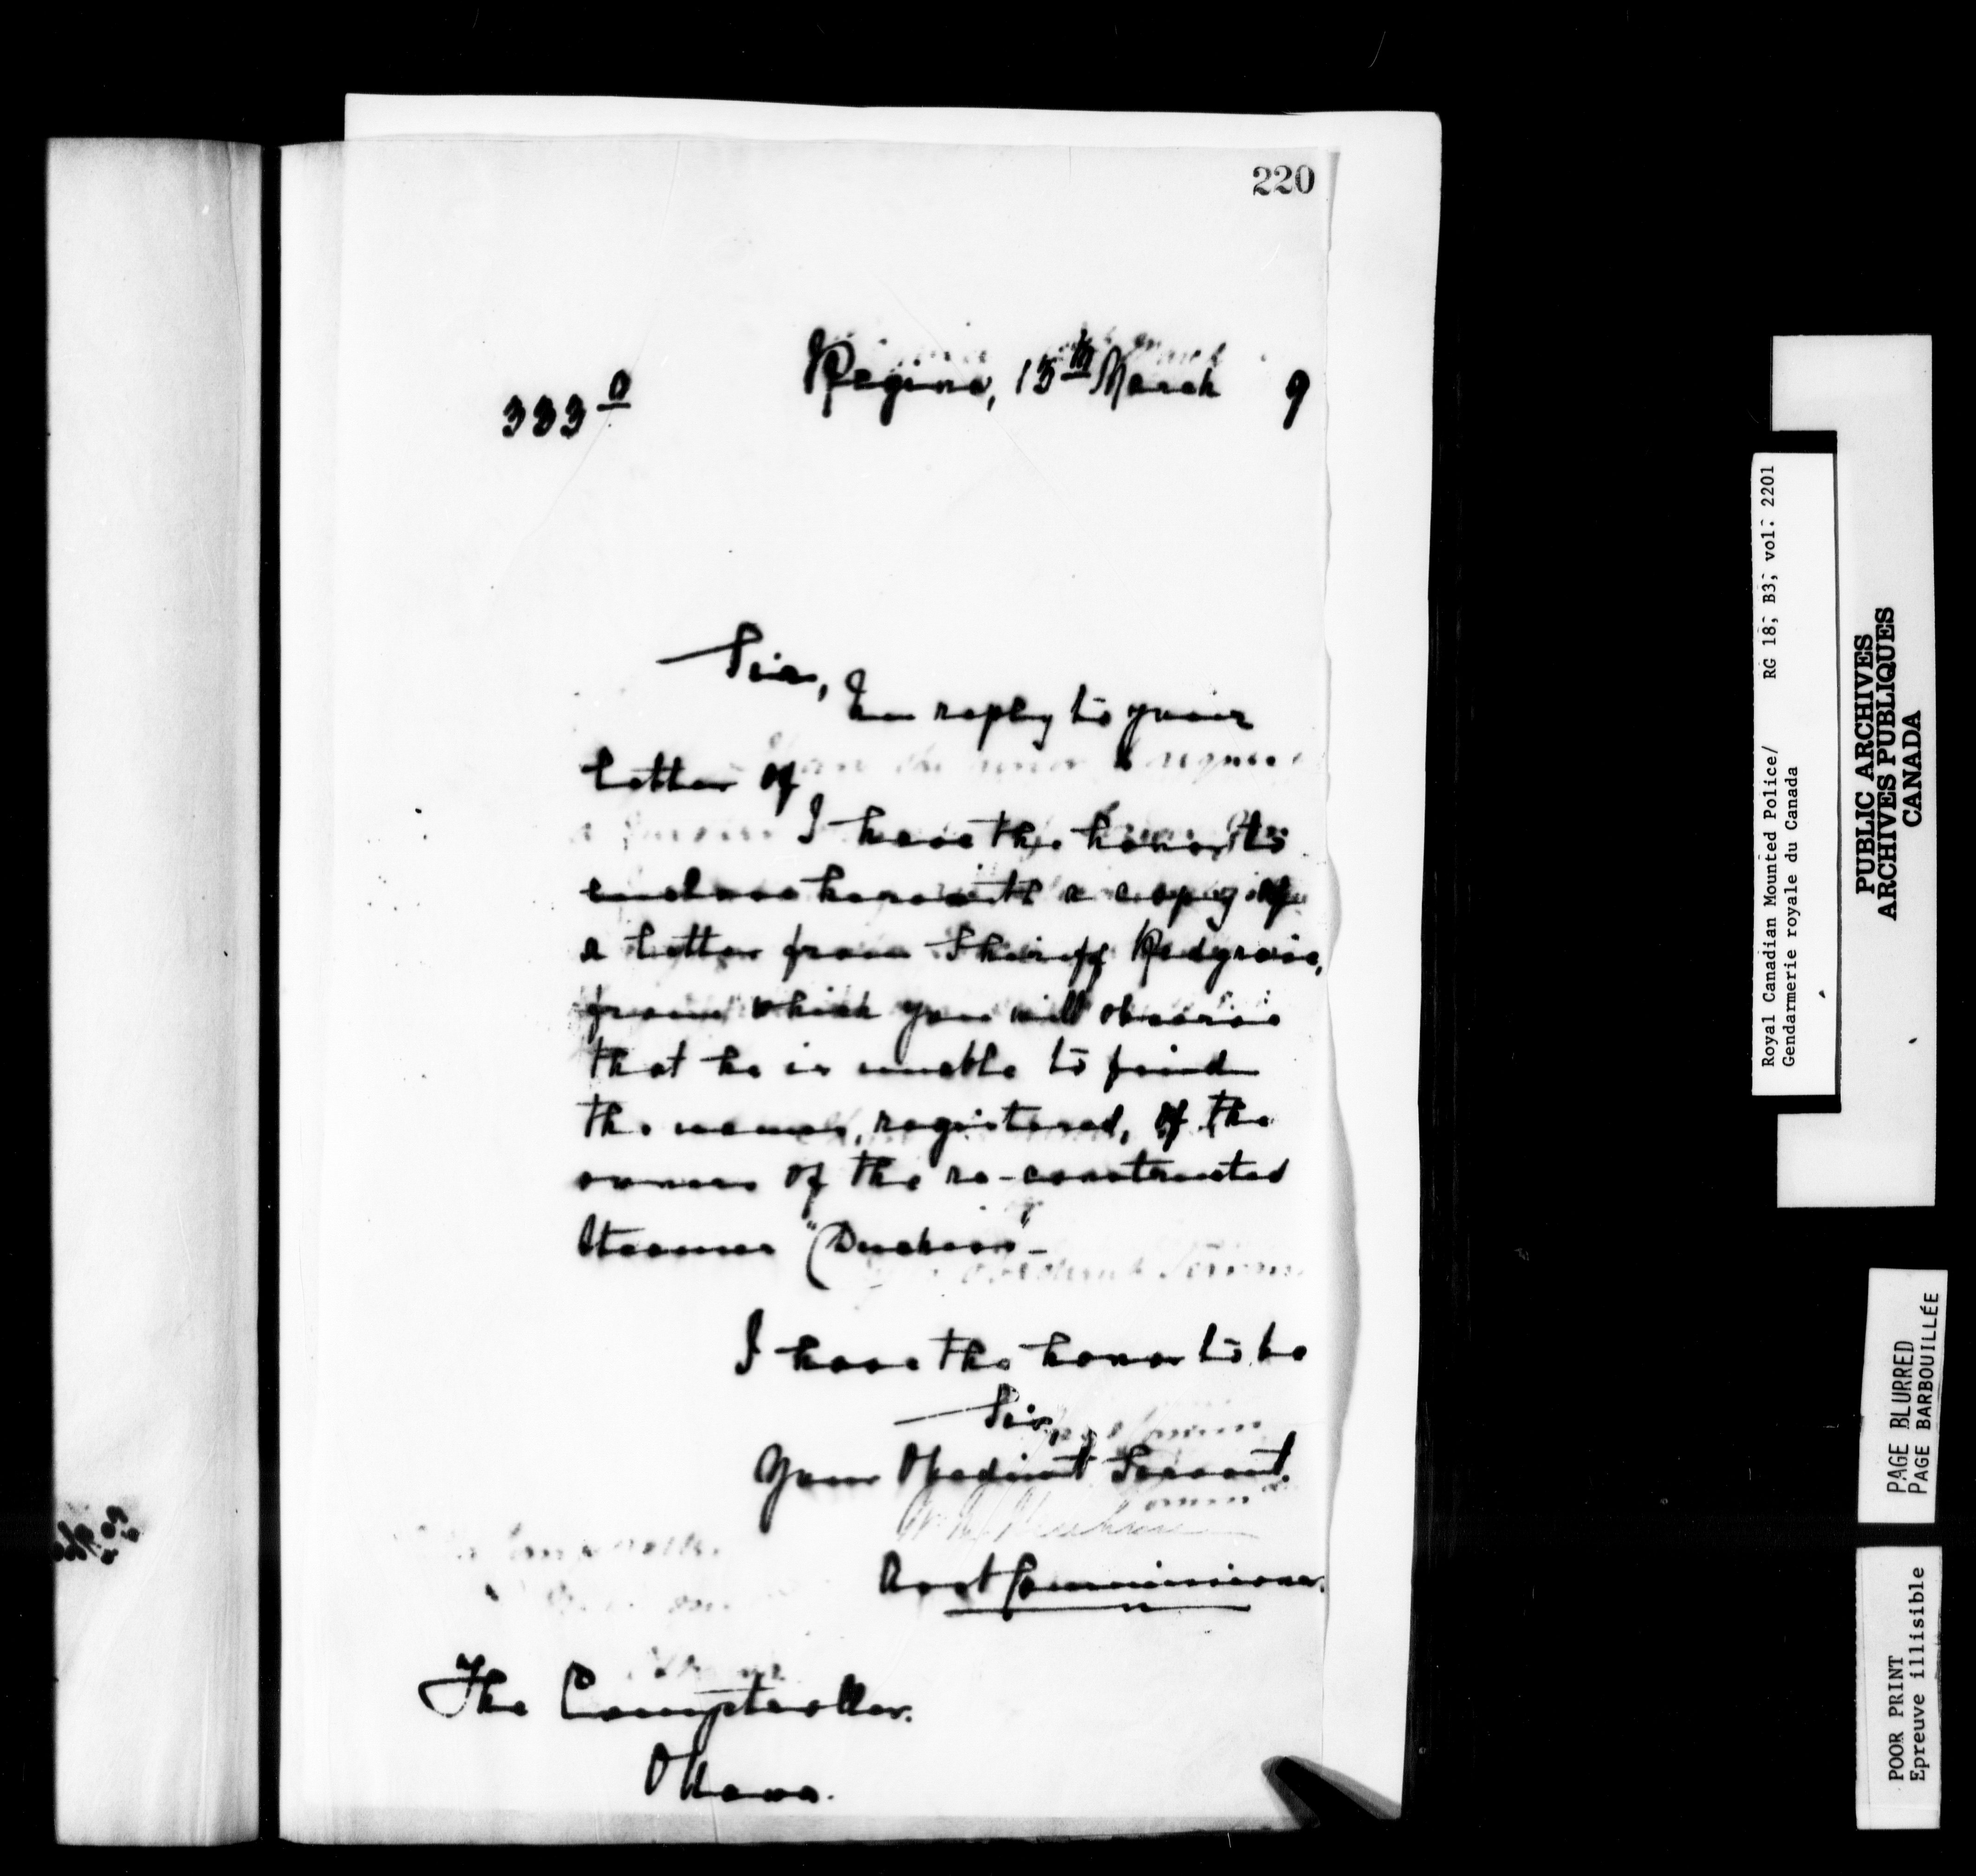 220
333 0
Regina, 15th March 9
Sir,
In reply to your
letter of
I have the honor to
enclose herewith a copy of
a letter from Sheriff Redgrave,
from which you will observe
that he is unable to find
the names, registered, of the
owners of the re-constructed
Steamer "Duchess" -
I have the honor to be
Sir,
Your Obedient Servant.
Asst Commissioner.
The Comptroller.
Ottawa.
Royal Canadian Mounted Police/ RG 18; B3; vol: 2201
Gendarmerie royale du Canada
PUBLIC ARCHIVES
ARCHIVES PUBLIQUES
CANADA
PAGE BLURRED
PAGE BARBOUILLÉE
POOR PRINT
Epreuve illisible